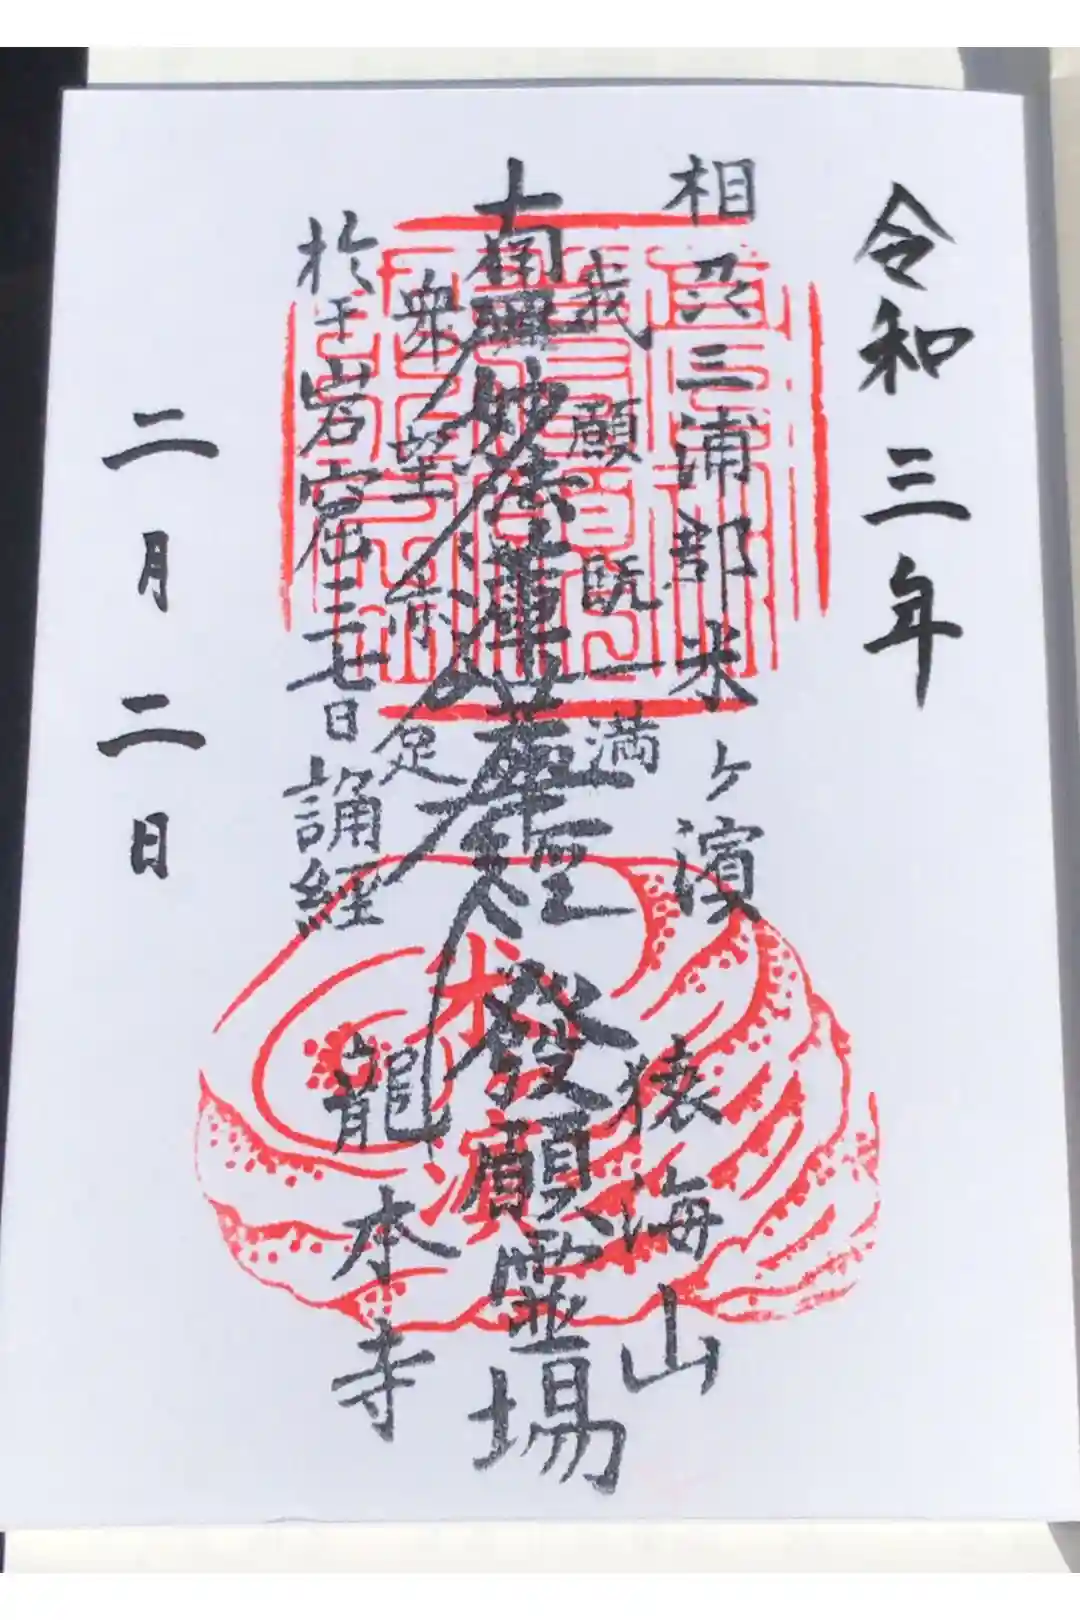 令和三年
相州三浦郡米ヶ濱
猿海山
我願既満
南無妙法蓮華経
發願霊場
衆望亦足
龍本寺
於干岩窟三七日誦経
二月二日
米
濱